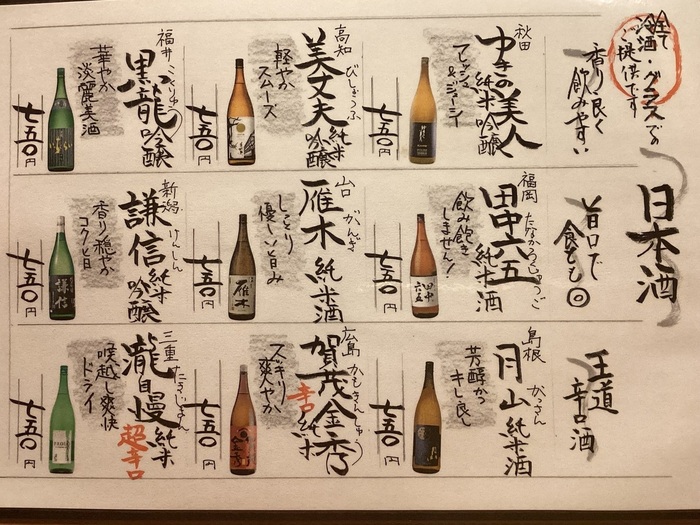 日本酒
全て
冷酒・グラスでの
ご提供です
香り良く
飲みやすい
秋田
ゆきの美人
純米吟醸
フレッシュ
&ジューシー
七五〇円
高知
びじょうふ
美丈夫
純米
吟醸
軽やか
スムーズ
七五〇円
福井
こくりゅう
黒龍
吟醸
華やか
淡麗美酒
七五〇円
旨口で
食とも◎
福岡
たなかろくじゅうご
田中六五
純米酒
飲み飽き
しません!
七五〇円
山口
がんぎ
雁木
純米酒
しっとり
優しい旨み
七五〇円
新潟
けんしん
謙信
純米
吟醸
香り穏やか
コクと旨
七五〇円
王道
辛口酒
島根
がっさん
月山
純米酒
芳醇かつ
キレ良し
七五〇円
広島
かもきんしゅう
賀茂金秀
辛口
純米
スッキリ
爽やか
七五〇円
三重
たきじまん
瀧自慢
純米
超辛口
喉越し爽快
ドライ
七五〇円